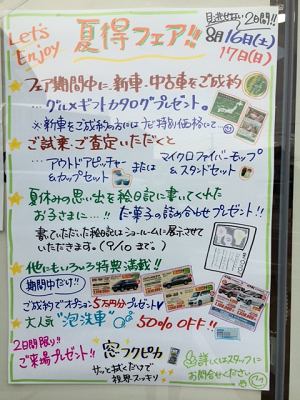 Let's Enjoy
夏得フェア!!
見逃せない2日間!!
8月16日(土)
17日(日)
フェア期間中に、新車・中古車をご成約
…グルメギフトカタログプレゼント。
※新車をご成約の方にはナビ特別価格にて…
ご試乗・ご査定いただくと
…アウトドアピッチャー&カップセット または マイクロファイバーモップ&スタンドセット
夏休みの思い出を絵日記に書いてくれた
お子さまに…!! だ菓子の詰め合せプレゼント!!
書いていただいた絵日記はショールームに展示させて
いただきます。(9/10まで。)
他にもいろいろ特典満載!!
期間中だけ!!
ご成約でオプション5万円分プレゼント
大人気"泡洗車" 50%OFF!!
2日間限り!!
ご来場プレゼント!!
窓フクピカ
サッと拭くだけで
視界スッキリ
詳しくはスタッフに
お問合せください